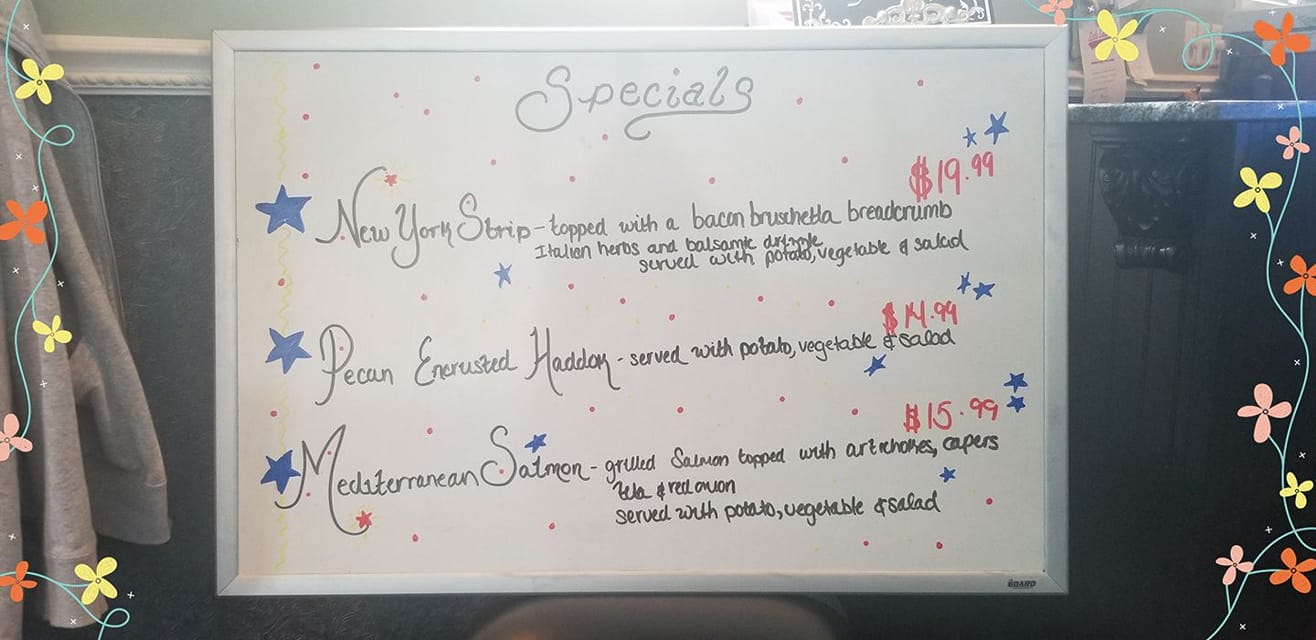 Specials
$19.99
New York Strip - topped with a bacon bruschetta breadcrumb
Italian herbs and balsamic drizzle
served with potato, vegetable & salad
$14.99
Pecan Encrusted Haddok - served with potato, vegetable & salad
$15.99
Mediterranean Salmon - grilled Salmon topped with artichokes, capers
feta & red onion
served with potato, vegetable & salad
BOARD